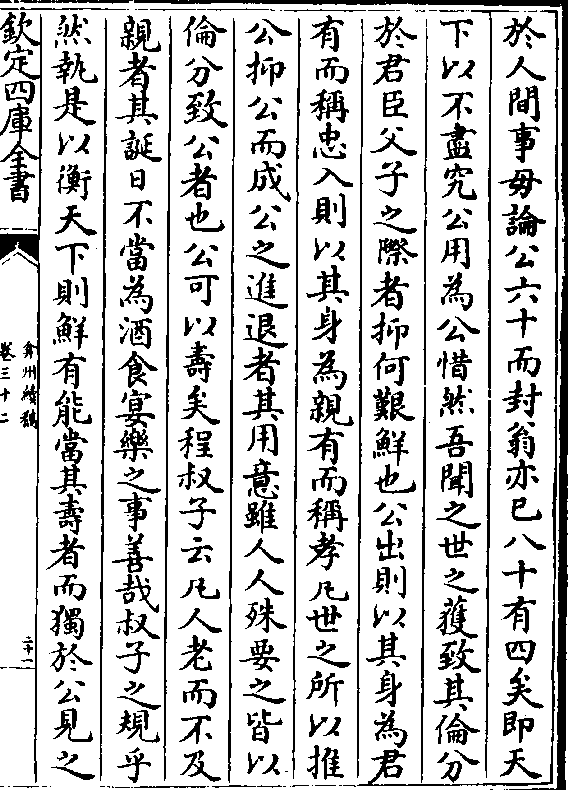 於人間事毋論公六十而封翁亦已八十有四矣即天
下以不盡究公用為公惜然吾聞之世之獲致其倫分
於君臣父子之際者抑何艱鮮也公出則以其身為君
有而稱忠入則以其身為親有而稱孝凡世之所以推
公抑公而成公之進退者其用意雖人人殊要之皆以
倫分致公者也公可以壽矣程叔子云凡人老而不及
親者其誕日不當為酒食宴樂之事善哉叔子之規乎
然執是以衡天下則鮮有能當其壽者而獨於公見之
欽定四庫全書
弇州續稿
卷三十二
二十一